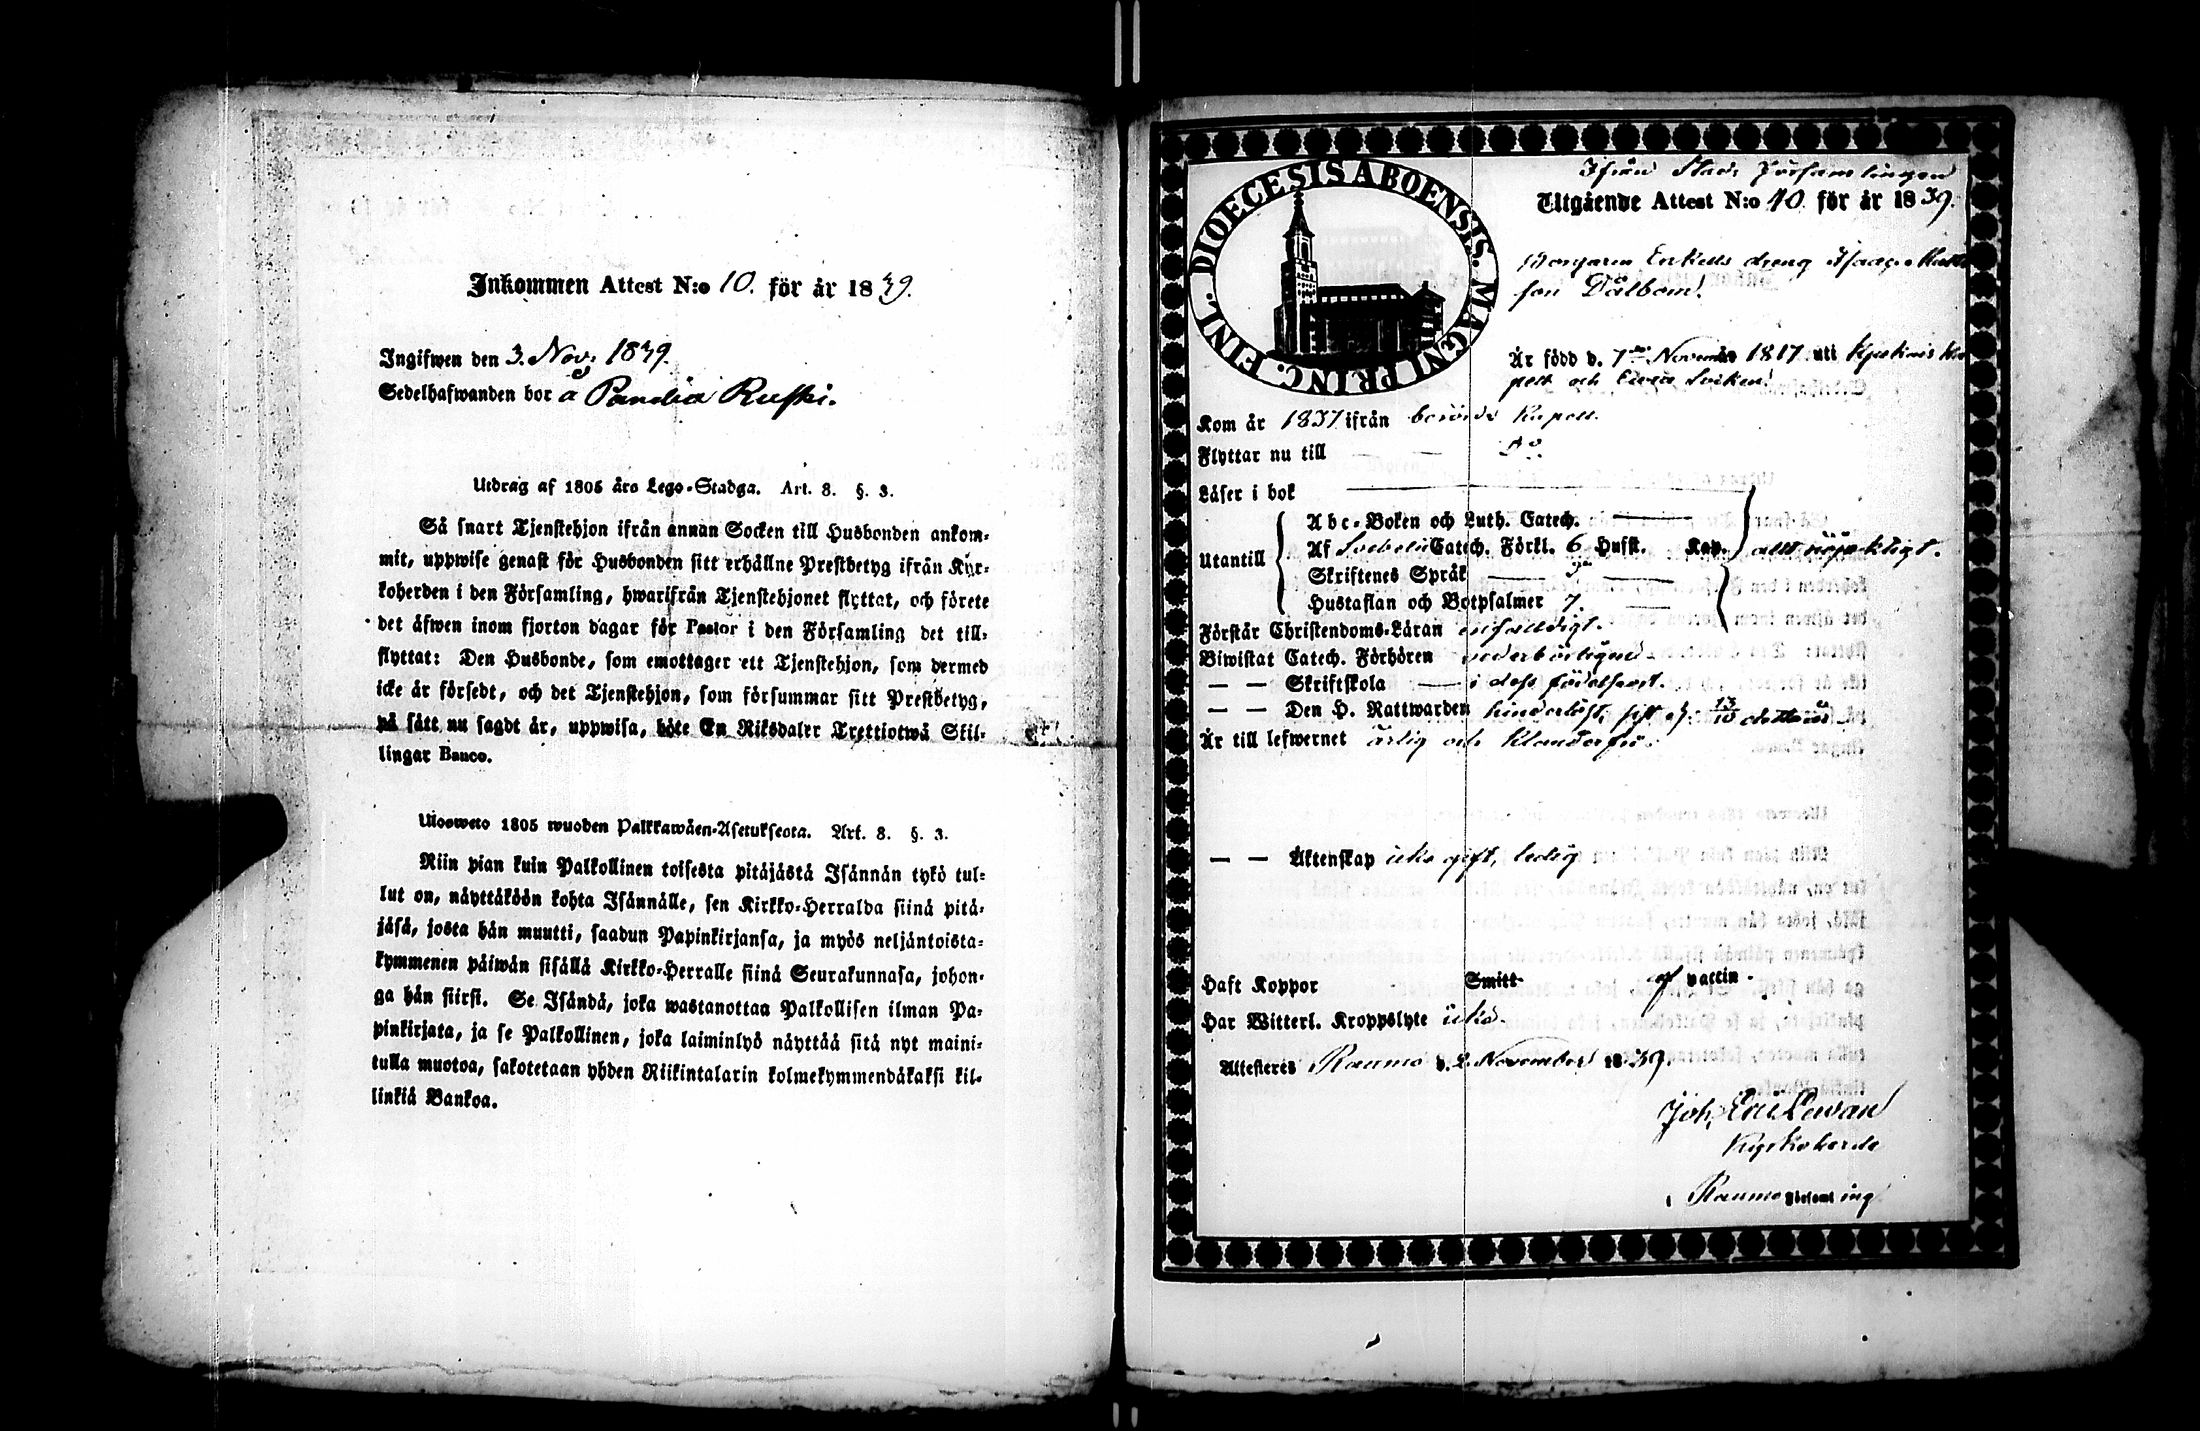 Inkommen Attest N:o 10. för år 1839.
Ingifwen den 3. Nov. 1839.
Sedelhafwanden bor å Ruski.
Utdrag af 1805 års Lego-Stadga. Art. 8. §. 3.
Så snart Tjenstehjon ifrån annan Socken till Husbonden ankom-
mit, uppwise genast för Husbonden sitt erhållne Prestbetyg ifrån Kyr-
koherden i den Församling, hwarifrån Tjenstehjonet flyttat, och förete
det äfwen inom fjorton dagar för Pastor i den Församling det till-
flyttat: Den Husbonde, som emottager ett Tjenstehjon, som dermed
icke är försedt, och det Tjenstehjon, som försummar sitt Prestbetyg,
på sätt nu sagdt är, uppwisa, böte En Riksdaler Trettiotwå Skil-
lingar Banco.
Ulosweto 1805 wuoden Palkkawäen-Asetuksesta. Art. 8. §. 3.
Niin pian kuin Palkollinen toisesta pitäjästä Isännän tykö tul-
lut on, näyttäköön kohta Isännälle, sen Kirkko-Herralda siinä pitä-
jäsä, josta hän muutti, saadun Papinkirjansa, ja myös neljäntoista-
kymmenen päiwän sisällä Kirkko-Herralle siinä Seurakunnasa, johon-
ga hän siirsi. Se Isändä, joka wastanottaa Palkollisen ilman Pa-
pinkirjata, ja se Palkollinen, joka laiminlyö näyttää sitä nyt maini-
tulla muotoa, sakotetaan yhden Riikintalarin kolmekymmendäkaksi kil-
linkiä Bankoa.
DIOECESIS ABOENSIS. MAGNI PRINC. FINL.
Ifrån Stads Församlingen
Utgående Attest N:o 40 för år 1839.
Enkells dreng Isaac
son Dålbom.
Är född d. 7de November 1817 uti
pell och Eura Socken.
Kom år 1837 ifrån berörde Kapell.
Flyttar nu till — — Do.
Läser i bok
Abc-Boken och Luth. Catech.
Utantill Af Svebelii Catech. Förkl. 6 Hufst. Kap. allt
Skriftenes Språk
Hustaflan och Botpsalmer 7.
Förstår Christendoms-Läran enfalldigt.
Biwistat Catech. Förhören wederbörligen
— — Skriftskola — i dess födelseort.
— — Den H. Nattwarden hinderlöst, sist d. 13/10 detta år
Är till lefwernet ärlig och klanderfri.
— — Äktenskap icke gift, ledig
Haft Koppor Smitt af vaccin.
Har Witterl. Kroppslyte icke.
Attesteras Raumo d. 2 November 1839.
Joh.
Kyrkoherde
i Raumo Församling